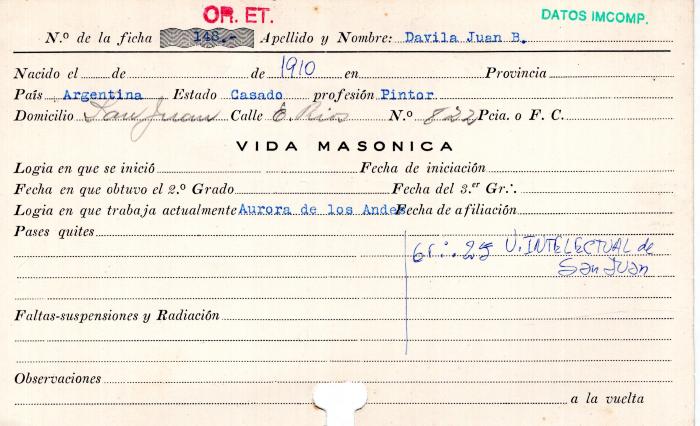 OR. ET.
DATOS IMCOMP.
N.º de la ficha 148.- Apellido y Nombre: Davila Juan B.
Nacido el de de 1910 en Provincia
País Argentina Estado Casado profesión Pintor
Domicilio San Juan Calle E. Rios N.º 822 Pcia. o F. C.
VIDA MASONICA
Logia en que se inició Fecha de iniciación
Fecha en que obtuvo el 2.º Grado Fecha del 3.er Gr∴
Logia en que trabaja actualmente Aurora de los Andes Fecha de afiliación
Pases quites
Gr∴ 25 U. INTELECTUAL de
San Juan
Faltas-suspensiones y Radiación
Observaciones
a la vuelta